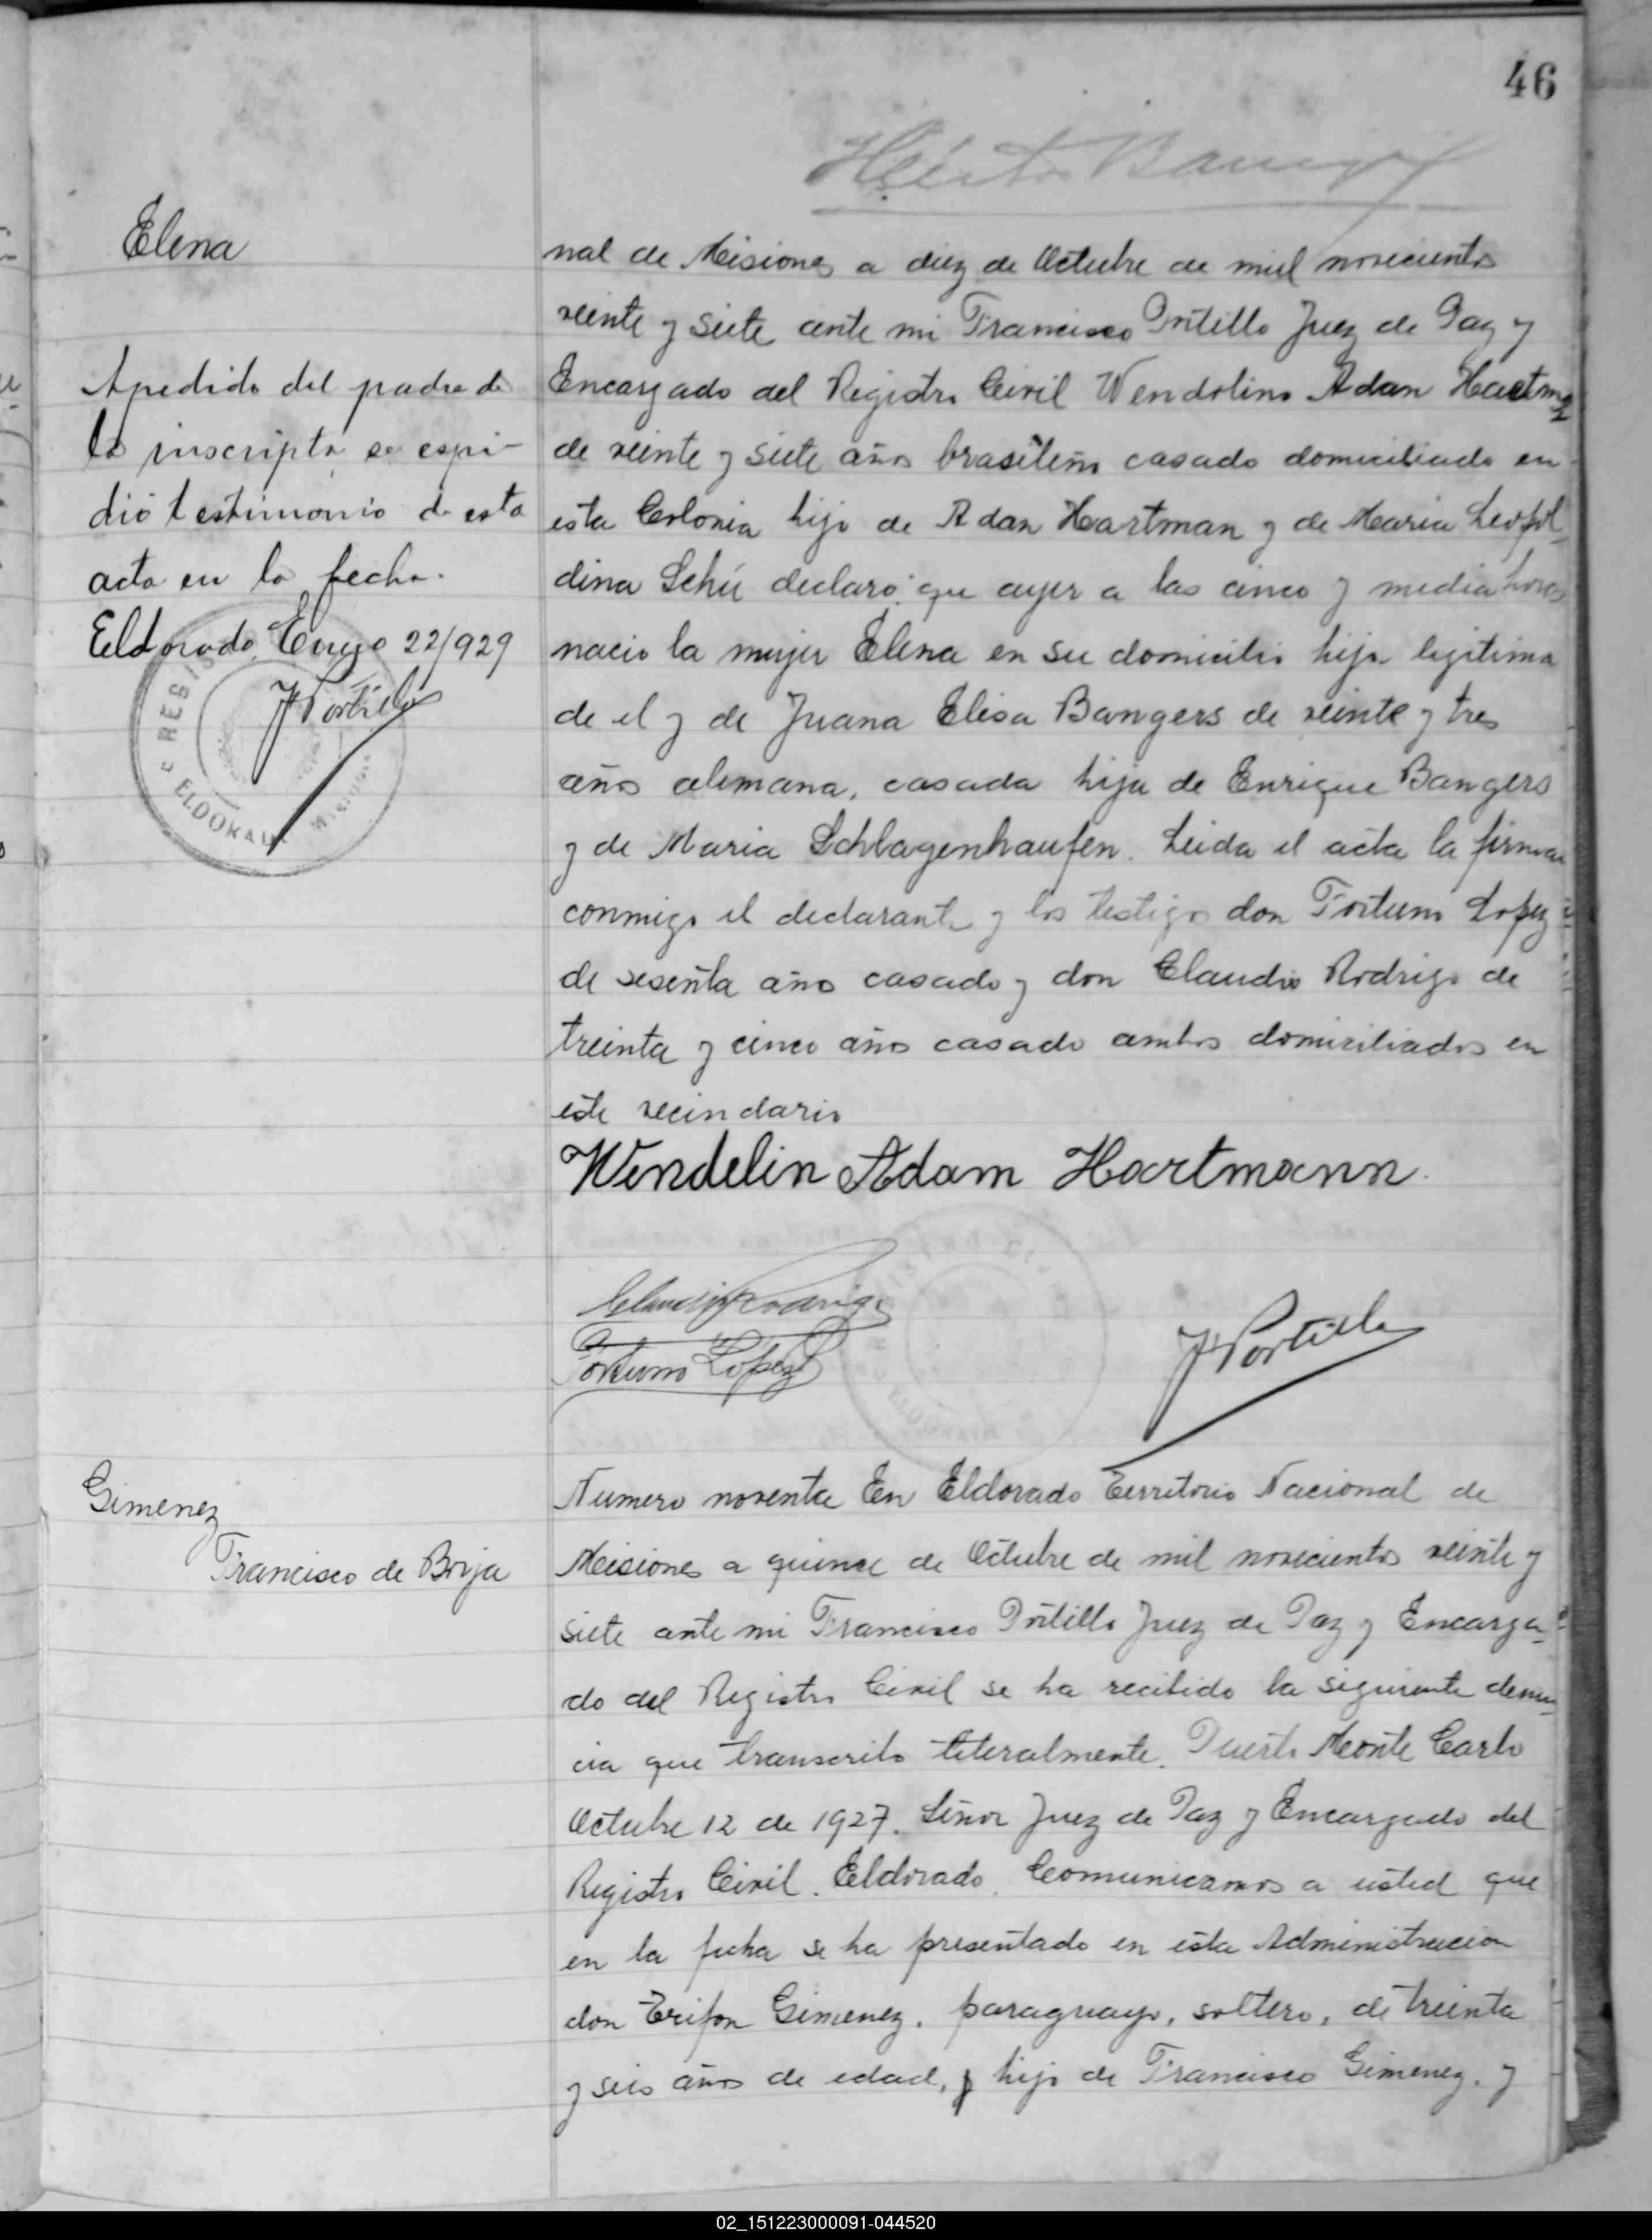 46
Elena
nal de Misiones a diez de Octubre de mil novecientos
veinte y siete ante mi Francisco Portillo Juez de Paz y
Encargado del Registro Civil Wendolino Adan Hartman
de veinte y siete años brasileño casado domiciliado en
esta Colonia hijo de Adan Hartman y de Maria Leopol
dina Schú declaró que ayer a las cinco y media horas
nacio la mujer Elena en su domicilio hija legitima
de el y de Juana Elisa Bangers de veinte y tres
años alemana, casada hija de Enrique Bangers
y de Maria Schlagenhaufen. Leida el acta la firman
conmigo el declarante y los testigos don Fortuno Lopez
de sesenta años casado y don Claudio Rodrigo de
treinta y cinco años casado ambos domiciliados en
este vecindario
Apedido del padre de
la inscripta se espi-
dió testimonio de esta
acta en la fecha.
Eldorado, Enero 22/929
F Portillo
REGIS
ELDORADO
MISIONES
Wendelin Adam Hartmann.
Claudio Rodrigo
Fortuno Lopez
F Portillo
Gimenez
Francisco de Borja
Numero noventa En Eldorado Territorio Nacional de
Misiones a quince de Octubre de mil novecientos veinte y
siete ante mi Francisco Portillo Juez de Paz y Encarga-
do del Registro Civil se ha recibido la siguiente denun-
cia que transcribo literalmente. Puerto Monte Carlo
Octubre 12 de 1927. Señor Juez de Paz y Encargado del
Registro Civil. Eldorado. Comunicamos a usted que
en la fecha se ha presentado en esta Administracion
don Trifon Gimenez, paraguayo, soltero, de treinta
y seis años de edad, y hijo de Francisco Gimenez, y
02_151223000091-044520